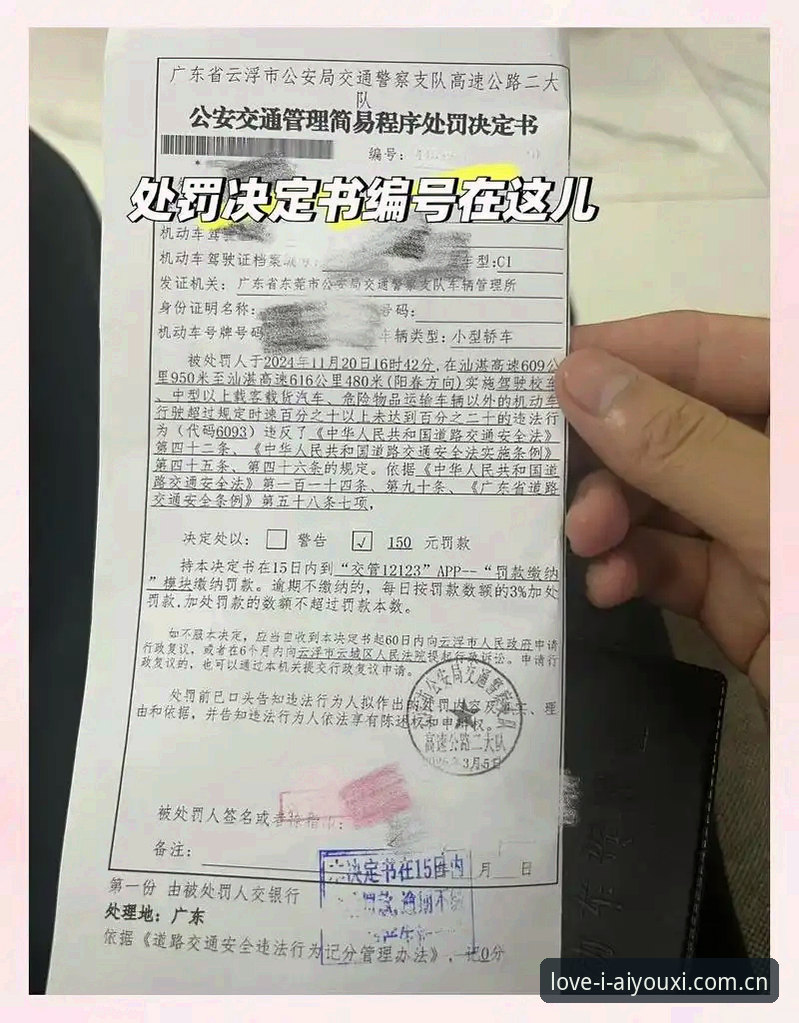 广东省云浮市公安局交通警察支队高速公路二大
队
公安交通管理简易程序处罚决定书
编号:
处罚决定书编号在这儿
机动车驾
机动车驾驶证档案 车型:C1
发证机关: 广东省东莞市公安局交通警察支队车辆管理所
身份证明名称: 号码:
机动车号牌号码 车辆类型: 小型轿车
被处罚人于2024年11月20日16时42分,在汕湛高速609公
里950米至汕湛高速616公里480米(阳春方向)实施驾驶校车
、中型以上载客载货汽车、危险物品运输车辆以外的机动车
行驶超过规定时速百分之十以上未达到百分之二十的违法行
为（代码6093）违反了《中华人民共和国道路交通安全法》
第四十二条、《中华人民共和国道路交通安全法实施条例》
第四十五条、第四十六条的规定。依据《中华人民共和国道
路交通安全法》第一百一十四条、第九十条、《广东省道路
交通安全条例》第五十八条七项,
决定处以: 警告 √ 150 元罚款
持本决定书在15日内到“交管12123”APP--“罚款缴纳
”模块缴纳罚款。逾期不缴纳的，每日按罚款数额的3%加处
罚款,加处罚款的数额不超过罚款本数。
如不服本决定，应当自收到本决定书起60日内向云浮市人民政府申请
行政复议，或者在6个月内向云浮市云城区人民法院提起行政诉讼。申请行
政复议的，也可以通过本机关提交行政复议申请。
处罚前已口头告知违法行为人拟作出的处罚内容及事实、理
由和依据，并告知违法行为人依法享有陈述权和申辩权。
市公安局交通警察支队
高速公路二大队
3月5日
被处罚人签名或
备注:
决定书在15日内
月 日
罚款,逾期不
第一份 由被处罚人交银行
处理地: 广东
依据《道路交通安全违法行为记分管理办法》, 记0分
love-i-aiyouxi.com.cn